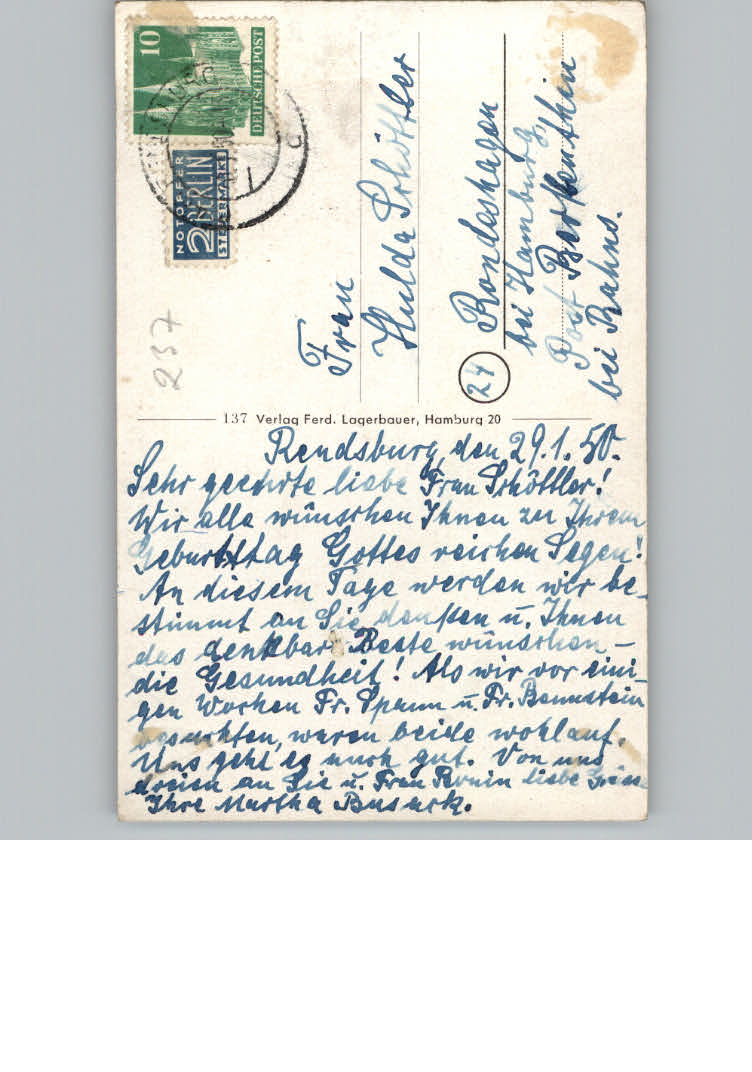 10
DEUTSCHE POST
NOTOPFER
2 BERLIN
STEUERMARKE
237
Frau
Hulda Schöttler
(24) Rondeshagen
bei Hamburg
Post Berkenthin
bei Rahns.
137 Verlag Ferd. Lagerbauer, Hamburg 20
Rendsburg, den 29.1.50.
Sehr geehrte liebe Frau Schöttler!
Wir alle wünschen Ihnen zu Ihrem
Geburtstag Gottes reichen Segen!
An diesem Tage werden wir be-
stimmt an Sie denken u. Ihnen
das denkbar Beste wünschen –
die Gesundheit! Als wir vor eini-
gen Wochen Fr. Spann u. Fr. Bennstein
besuchten, waren beide wohlauf.
Uns geht es auch gut. Von uns
dreien an Sie u. Frau liebe Grüsse
Ihre Martha Busack.